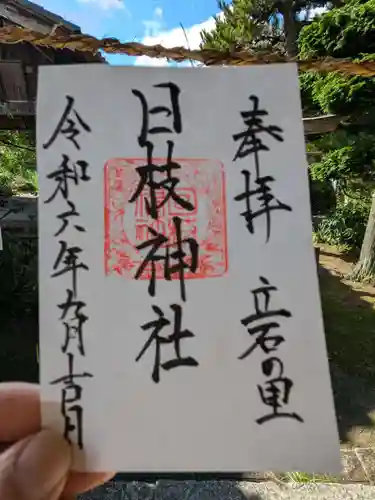 奉拝 立石の里
日枝神社
令和六年九月十吉日